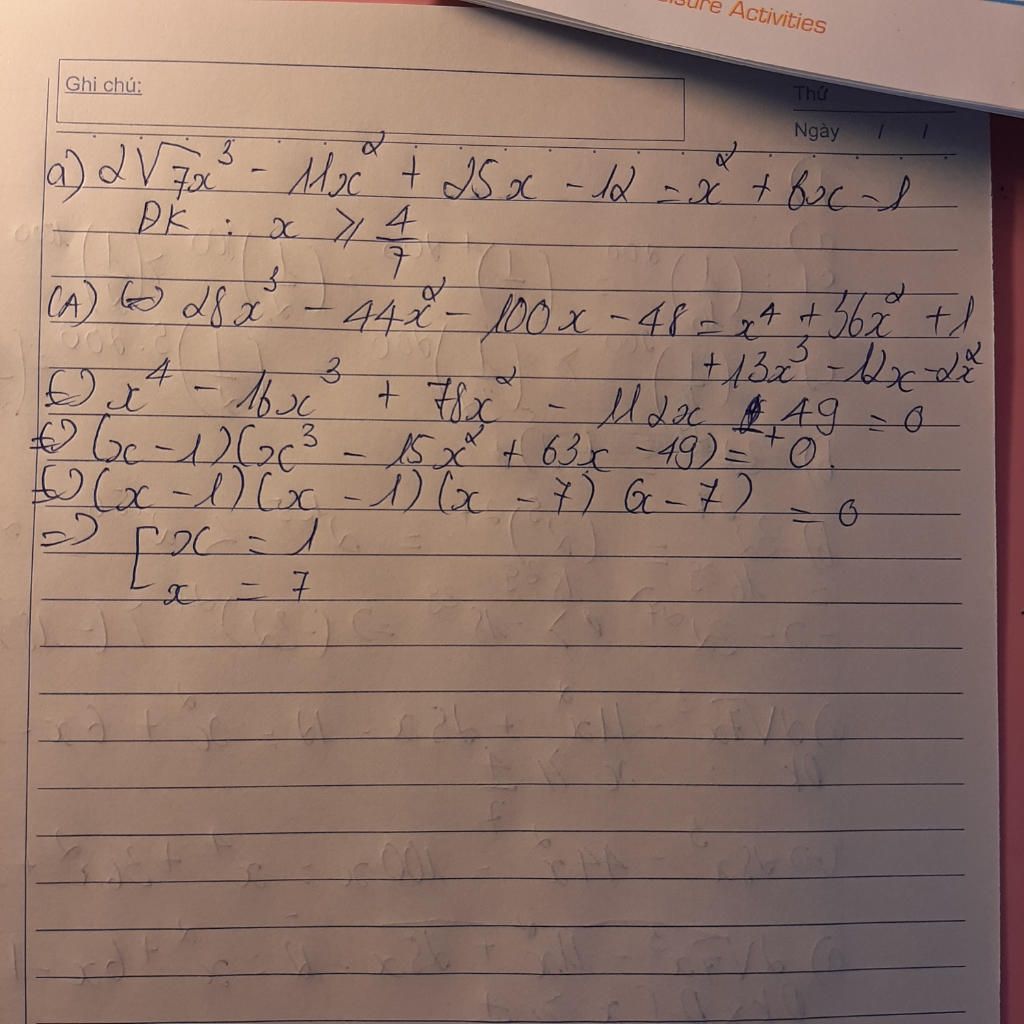 eisure Activities
Ghi chú:
Thứ
Ngày / /
a) 2√7x³ - 11x² + 25x - 12 = x² + 6x - 1
ĐK : x ⩾ 4/7
(A) (=) 28x³ - 44x² - 100x - 48 = x⁴ + 36x² + 1
+ 13x³ - 12x - 2x²
(=) x⁴ - 16x³ + 78x² - 112x + 49 = 0
(=) (x - 1)(x³ - 15x² + 63x - 49) = 0.
(=) (x - 1)(x - 1)(x - 7)(x - 7) = 0
=> [x = 1
x = 7